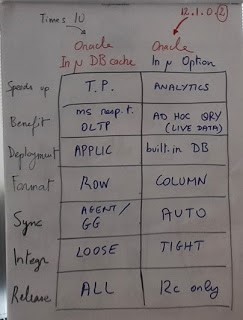 Times IU
12.1.0.2
Oracle Oracle
In μ DB cache In μ Option
Speeds up T.P. ANALYTICS
Benefit ms resp. t. OLTP AD HOC QRY (LIVE DATA)
Deployment APPLIC built.in DB
Format ROW COLUMN
Sync AGENT/ GG AUTO
Integr LOOSE TIGHT
Release ALL 12c only